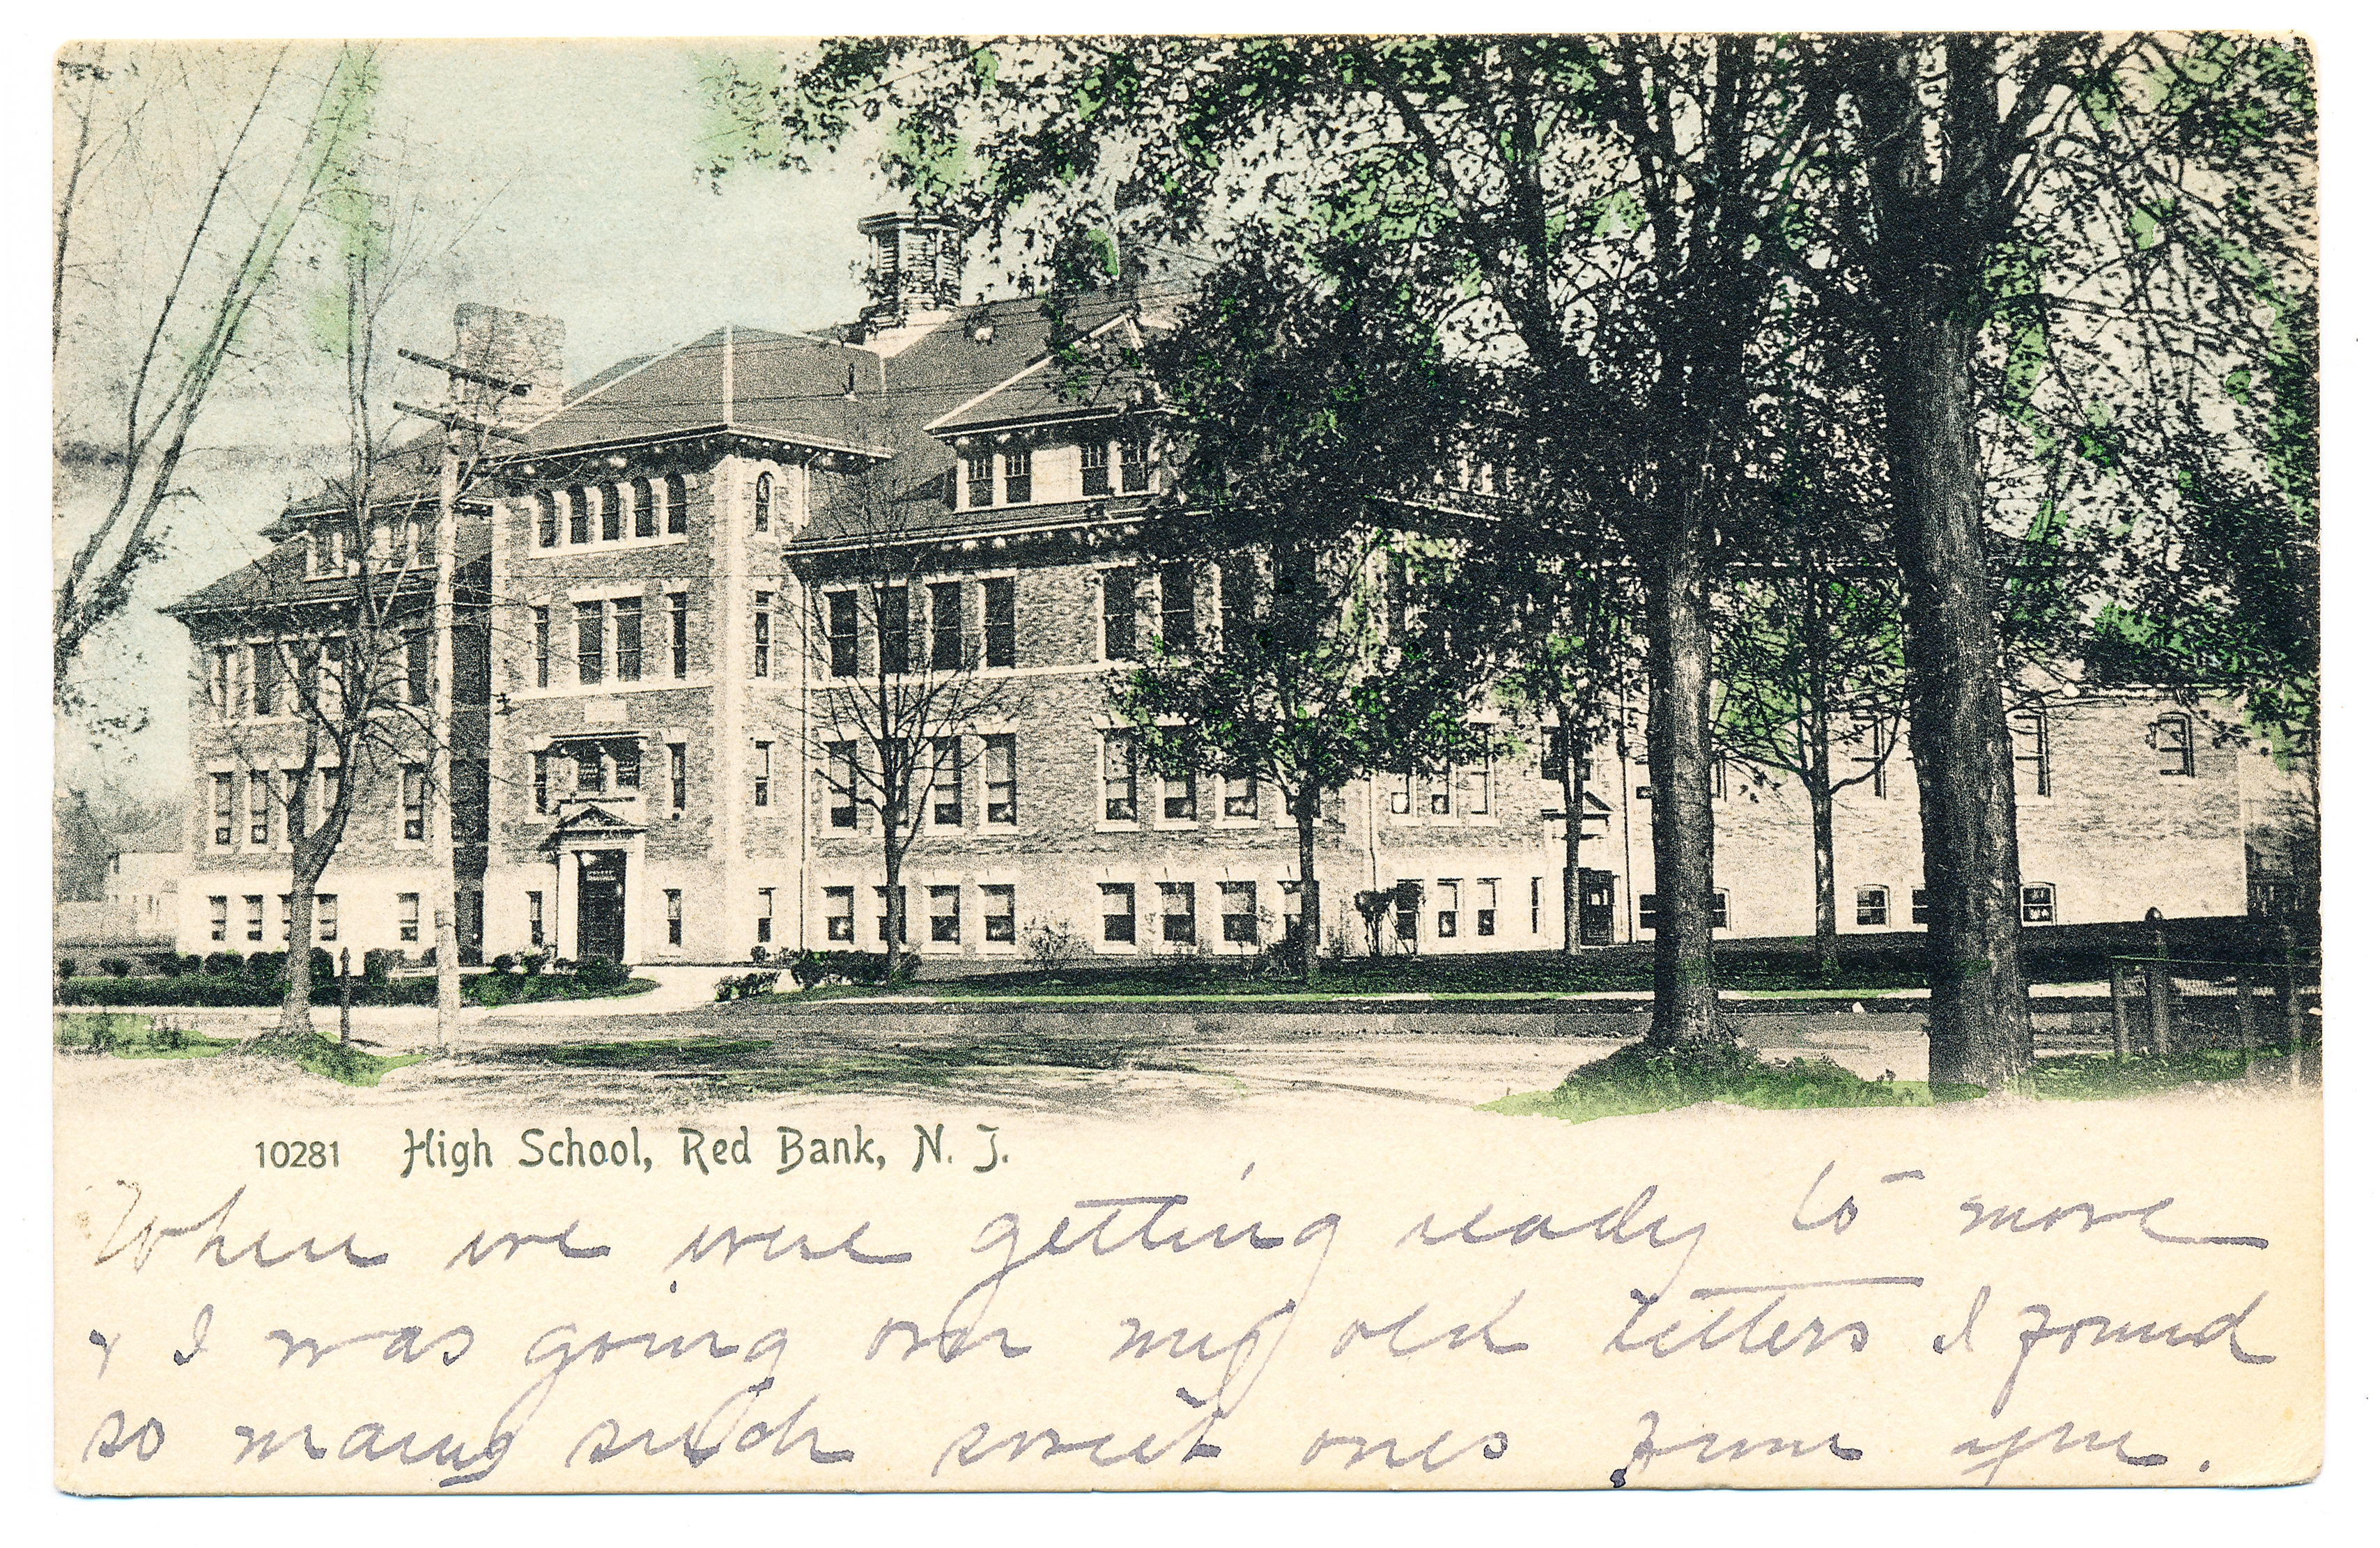 10281 High School, Red Bank, N. J.
When we were getting ready to move
& I was going over my old letters I found
so many such sweet ones from you.